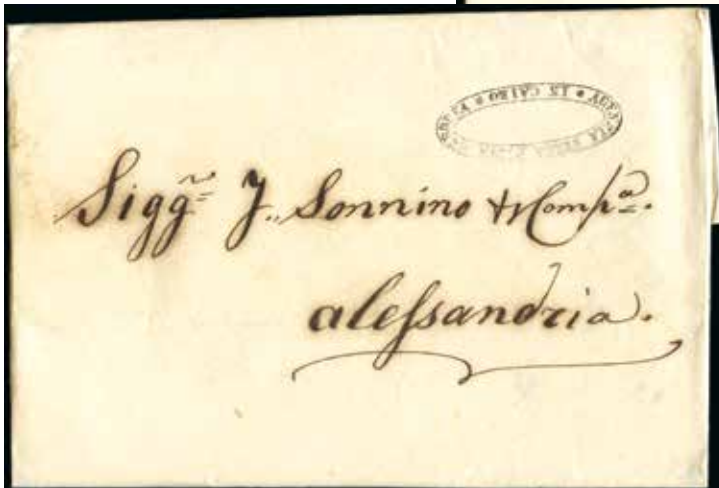 * IN CAIRO *
Sigg.ri J. Sonnino & Comp.a
aleſsandria.